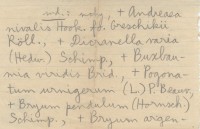 md.: moly, + Andreaea
nivalis Hook. fo. Greschikii
Röll., + Dicranella varia
(Hedw.) Schimp., + Buxbau-
mia viridis Brid., + Pogona-
tum urnigerum (L.) P. Beauv.,
+ Bryum pendulum (Hornsch.)
Schimp., + Bryum argen-